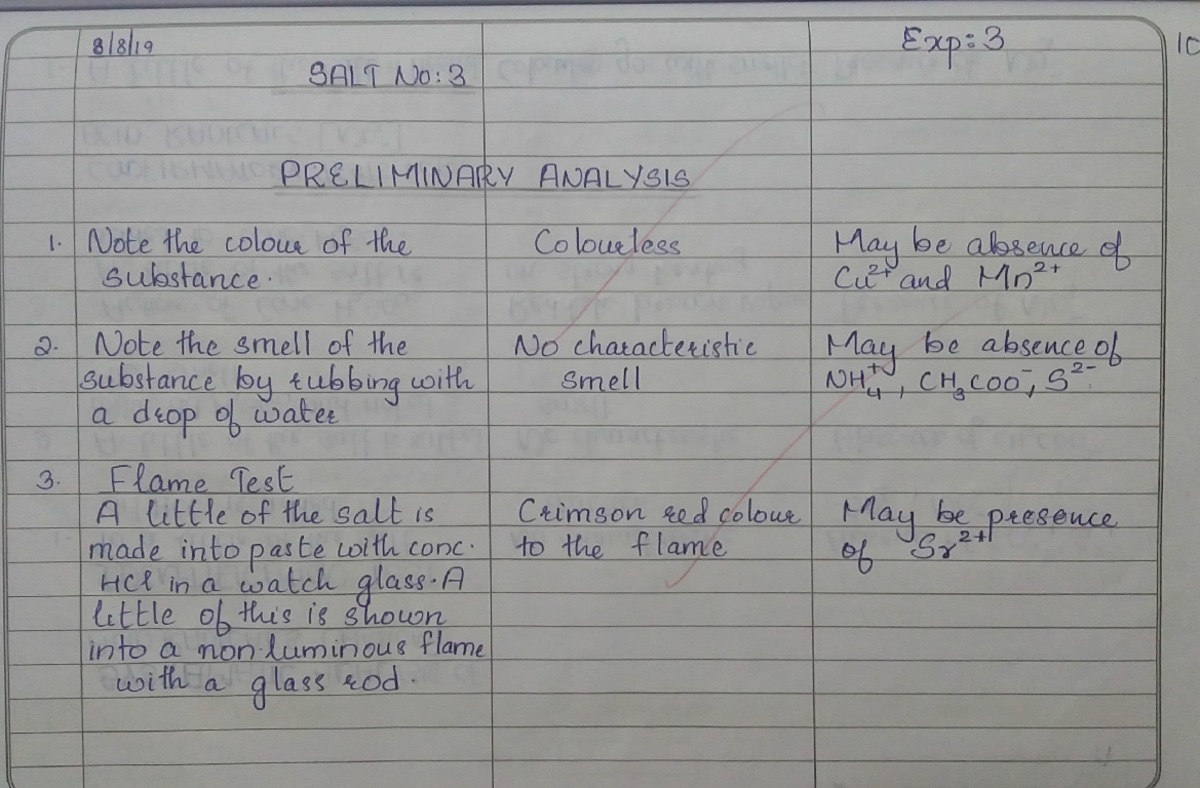 8/8/19
Exp:3
10
SALT No:3
PRELIMINARY ANALYSIS
1. Note the colour of the Colourless May be absence of
substance. Cu²⁺ and Mn²⁺
2. Note the smell of the No characteristic May be absence of
substance by rubbing with smell NH₄⁺, CH₃COO⁻, S²⁻.
a drop of water
3. Flame Test
A little of the salt is Crimson red colour May be presence
made into paste with conc. to the flame of Sr²⁺
HCl in a watch glass. A
little of this is shown
into a non-luminous flame
with a glass rod.